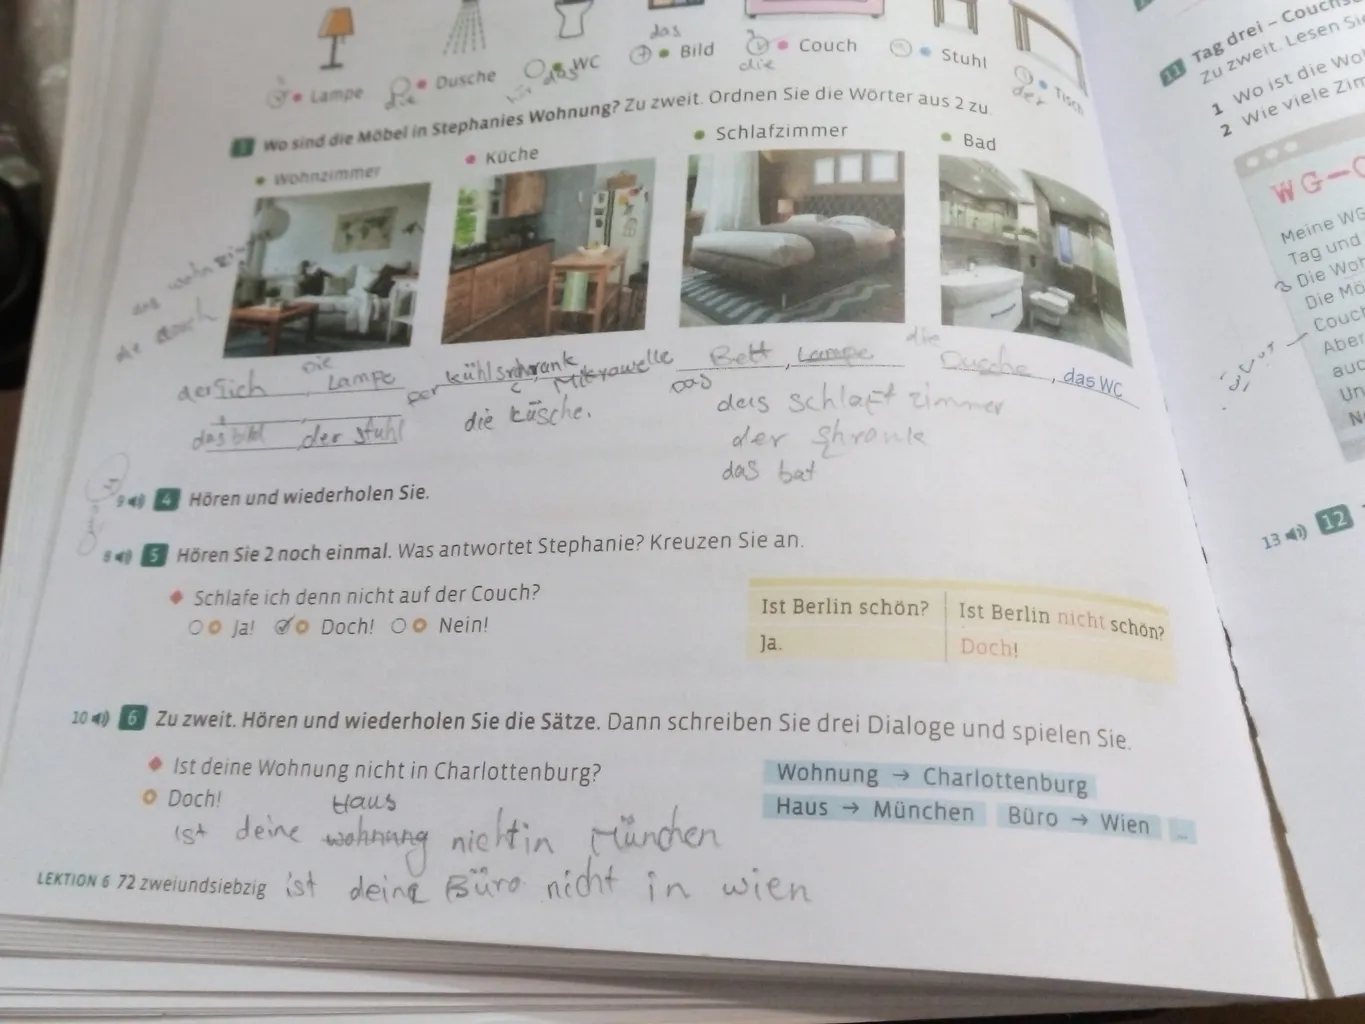 das
Lampe
Dusche
WC
Bild
Couch
Stuhl
Tisch
die
das
die
der
3 Wo sind die Möbel in Stephanies Wohnung? Zu zweit. Ordnen Sie die Wörter aus 2 zu.
Wohnzimmer
Küche
Schlafzimmer
Bad
die
die Lampe
kühlschrank, Mikrawelle
Das Bett, Lampe
die Dusche, das WC
das bild, der stuhl
die küsche.
das schlaft zimmer
der shronk
das bat
9 4 Hören und wiederholen Sie.
8 5 Hören Sie 2 noch einmal. Was antwortet Stephanie? Kreuzen Sie an.
Schlafe ich denn nicht auf der Couch?
Ja! Doch! Nein!
Ist Berlin schön? Ist Berlin nicht schön?
Ja. Doch!
10 6 Zu zweit. Hören und wiederholen Sie die Sätze. Dann schreiben Sie drei Dialoge und spielen Sie.
Ist deine Wohnung nicht in Charlottenburg?
Doch!
Wohnung → Charlottenburg
Haus → München Büro → Wien ...
Haus
ist deine wohnung nicht in München
ist deine Büro nicht in wien
LEKTION 6 72 zweiundsiebzig
11 Tag drei – 
Zu zweit. Lesen
1 Wo ist die
2 Wie viele
WG-
Meine WG
Tag und
Die
Die
Couch
Aber
13 12